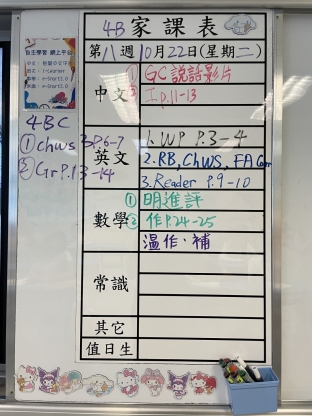 4B 家課表
第八週 10月22日(星期二)
自主學習 網上平台
中文
① GC說話影片
② 工P.11-13
4BC
① Chws P.6-7
② Gr P.13-14
英文
1. WP P.3-4
2. RB, Chws, FA Corr
3. Reader P.9-10
數學
① 明進評
② 作P.24-25
溫作·補
常識
其它
值日生